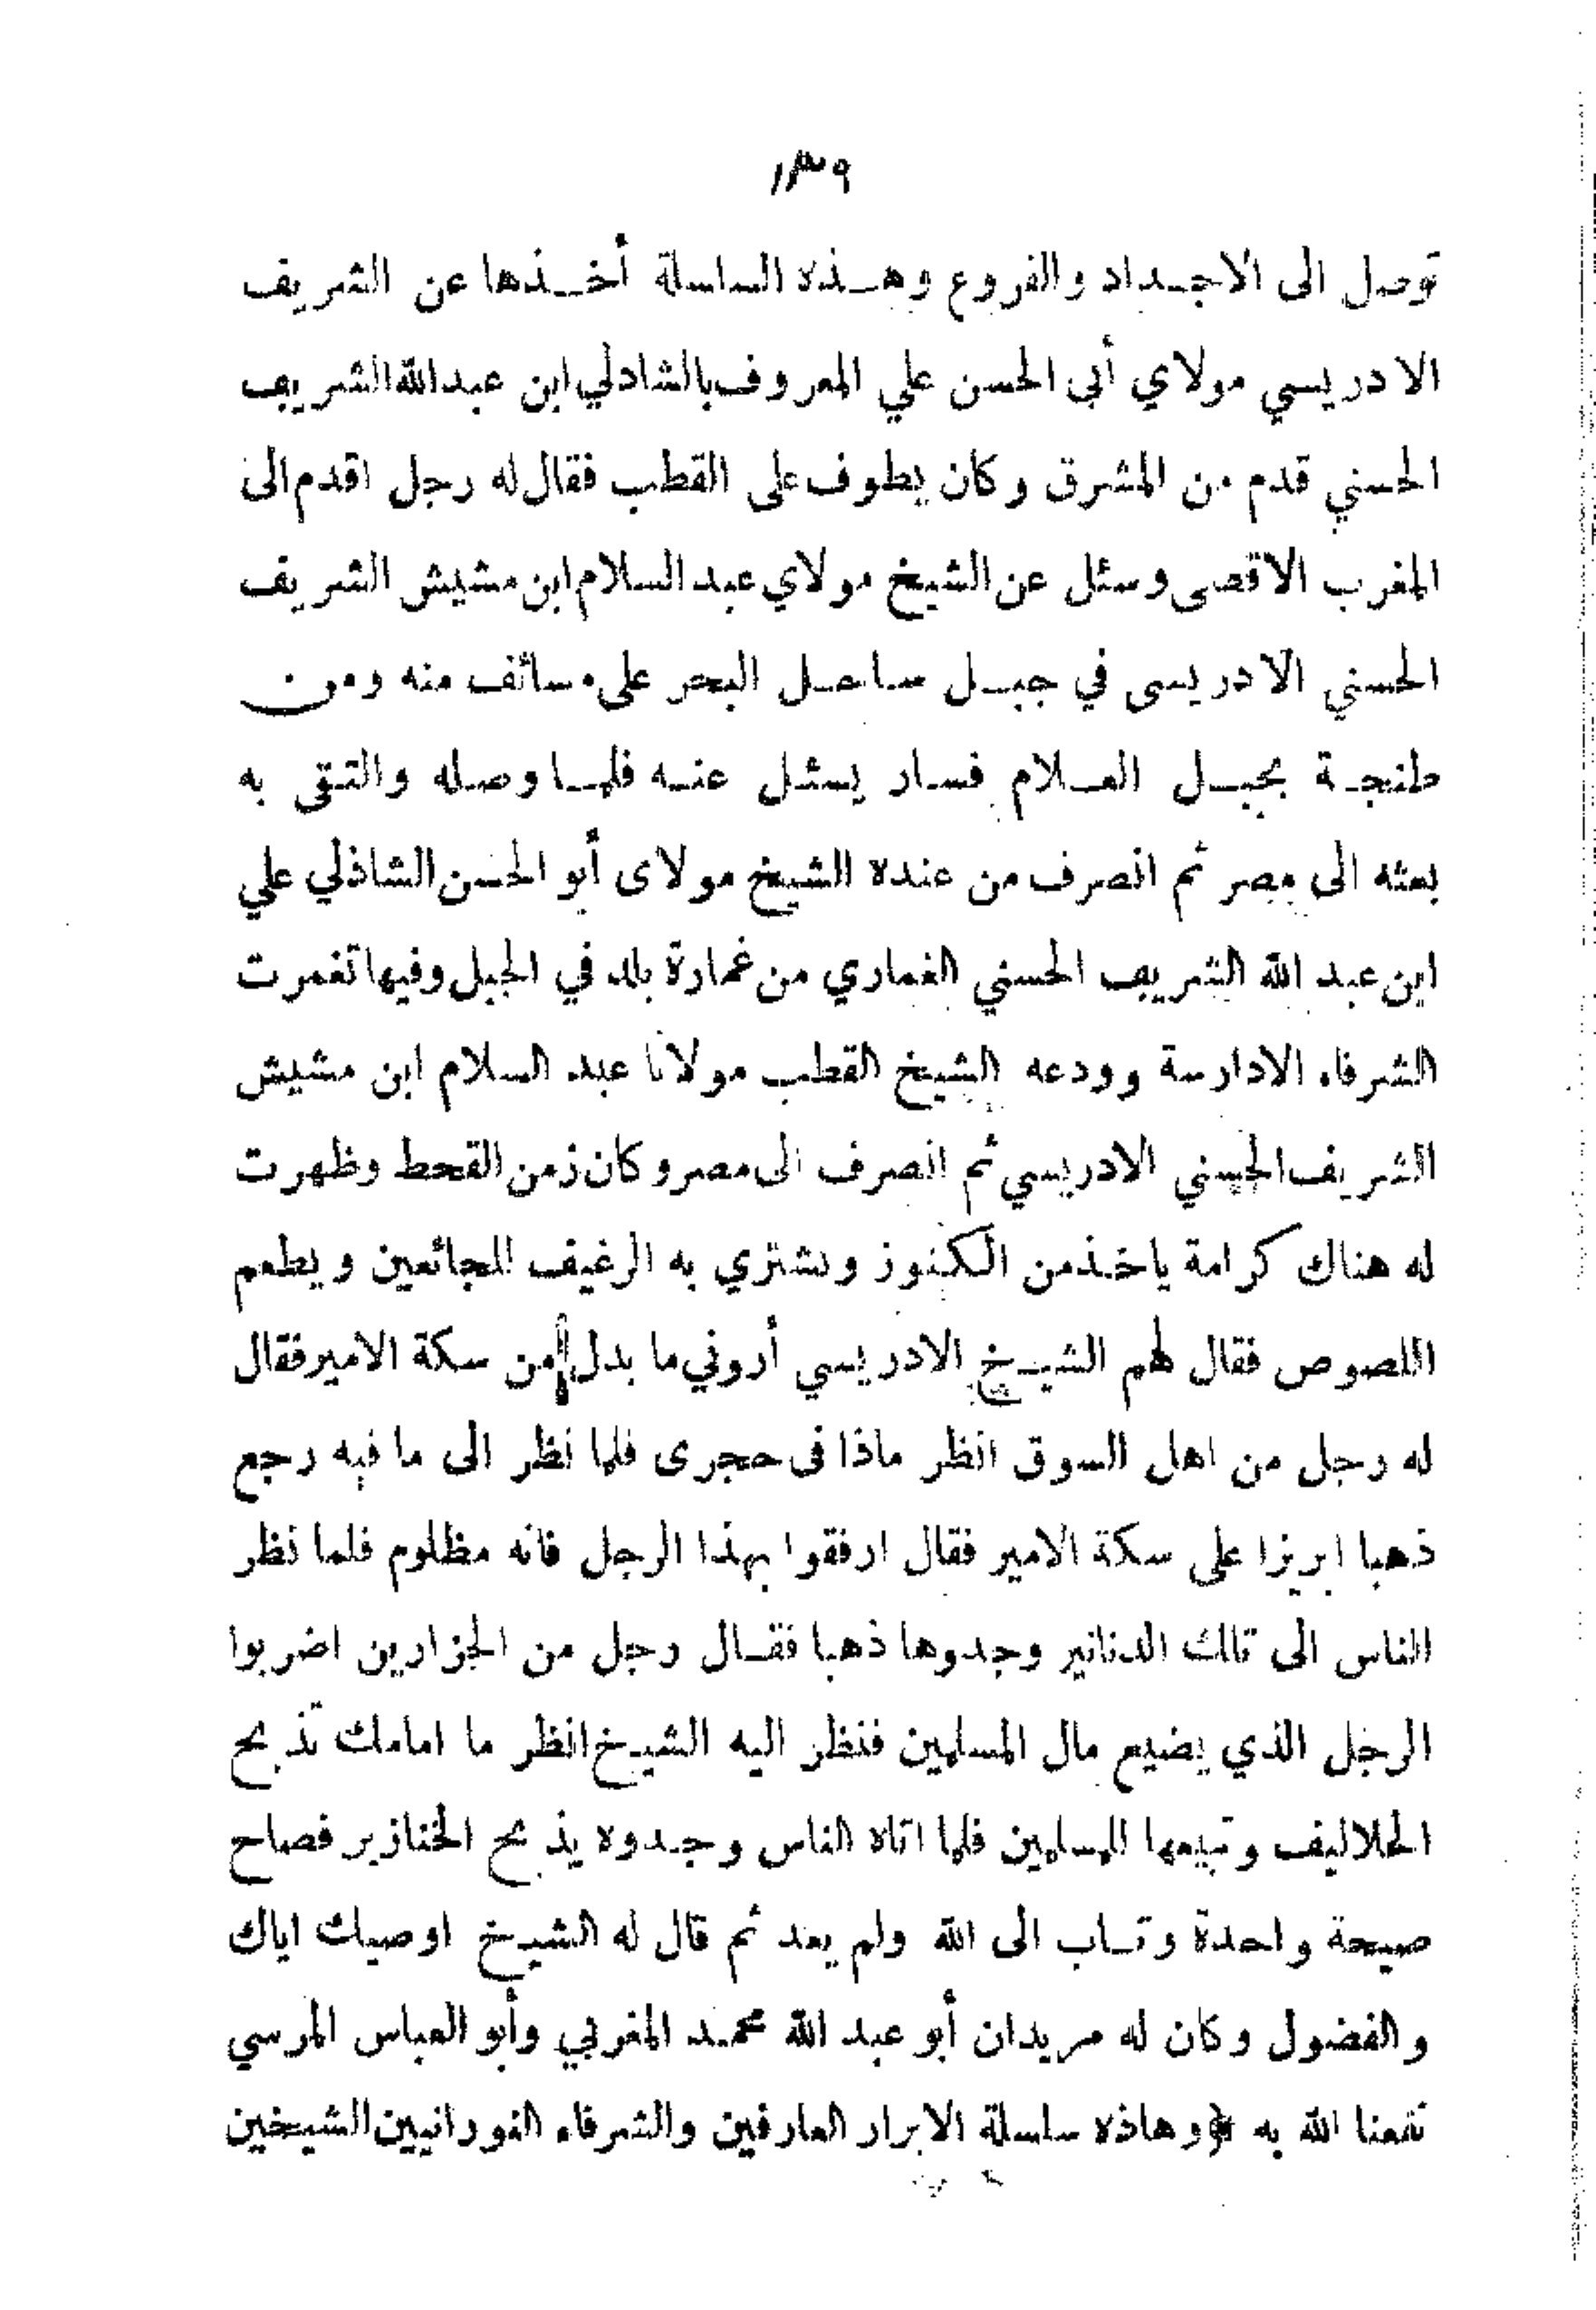 ١٣٩
توصل الى الاجداد والفروع وهذه السلسلة أخذها عن الشريف
الادريسي مولاي أبى الحسن علي المعروف بالشادلي ابن عبد الله الشريف
الحسني قدم من المشرق وكان يطوف على القطب فقال له رجل اقدم الى
المغرب الاقصى وسئل عن الشيخ مولاي عبد السلام ابن مشيش الشريف
الحسني الادريسى في جبل ساحل البحر على مسائف منه ومن
طنجة بجبل العلام فسار يسئل عنه فلما وصله والتقى به
بعثه الى مصر ثم انصرف من عنده الشيخ مولاى أبو الحسن الشاذلي علي
ابن عبد الله الشريف الحسني الغماري من غمارة بلد في الجبل وفيها تغمرت
الشرفاء الادارسة وودعه الشيخ القطب مولانا عبد السلام ابن مشيش
الشريف الحسني الادريسي ثم انصرف الى مصر وكان زمن القحط وظهرت
له هناك كرامة ياخذ من الكنوز ونشتري به الرغيف للجائعين ويطعم
اللصوص فقال لهم الشيخ الادريسي أروني ما بدل من سكة الامير فقال
له رجل من اهل السوق انظر ماذا فى حجرى فلما نظر الى ما فيه رجع
ذهبا ابريزا على سكة الامير فقال ارفقوا بهذا الرجل فانه مظلوم فلما نظر
الناس الى تلك الدنانير وجدوها ذهبا فقال رجل من الجزارين اضربوا
الرجل الذي يضيع مال المسلمين فنظر اليه الشيخ انظر ما امامك تذبح
الحلاليف وتبيعها للمسلمين فلما اتاه الناس وجدوه يذبح الخنازير فصاح
صيحة واحدة وتاب الى الله ولم يعد ثم قال له الشيخ اوصيك اياك
والفضول وكان له مريدان أبو عبد الله محمد المغربي وأبو العباس المرسي
نفعنا الله به * وهاذه سلسلة الابرار العارفين والشرفاء النورانيين الشيخين